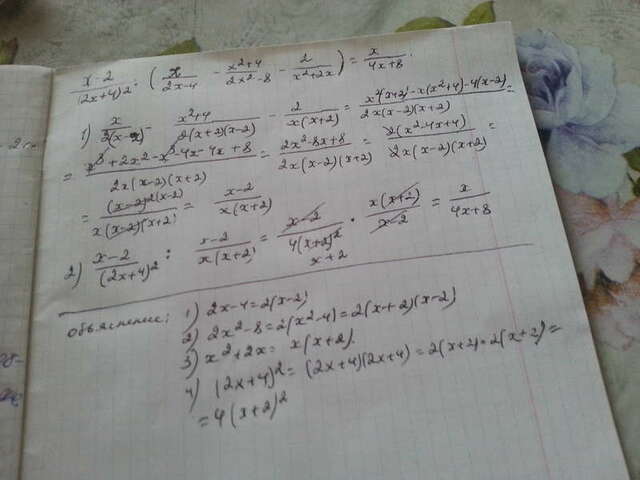 x-2/(2x+4)2 : (x/2x-4 - x²+4/2x²-8 - 2/x²+2x) = x/4x+8.
1) x/2(x-2) - x²+4/2(x+2)(x-2) - 2/x(x+2) = x²(x+2)-x(x²+4)-4(x-2)/2x(x-2)(x+2) =
= x³+2x²-x³-4x-4x+8/2x(x-2)(x+2) = 2x²-8x+8/2x(x-2)(x+2) = 2(x²-4x+4)/2x(x-2)(x+2) =
= (x-2)2(x-2)/x(x-2)(x+2) = x-2/x(x+2)
2) x-2/(2x+4)² : x-2/x(x+2) = x-2/4(x+2)² · x(x+2)/x-2 = x/4x+8
x+2
объяснение: 1) 2x-4=2(x-2)
2) 2x²-8=2(x²-4)=2(x+2)(x-2)
3) x²+2x= x(x+2).
4) (2x+4)²= (2x+4)(2x+4)=2(x+2)·2(x+2)=
=4(x+2)²